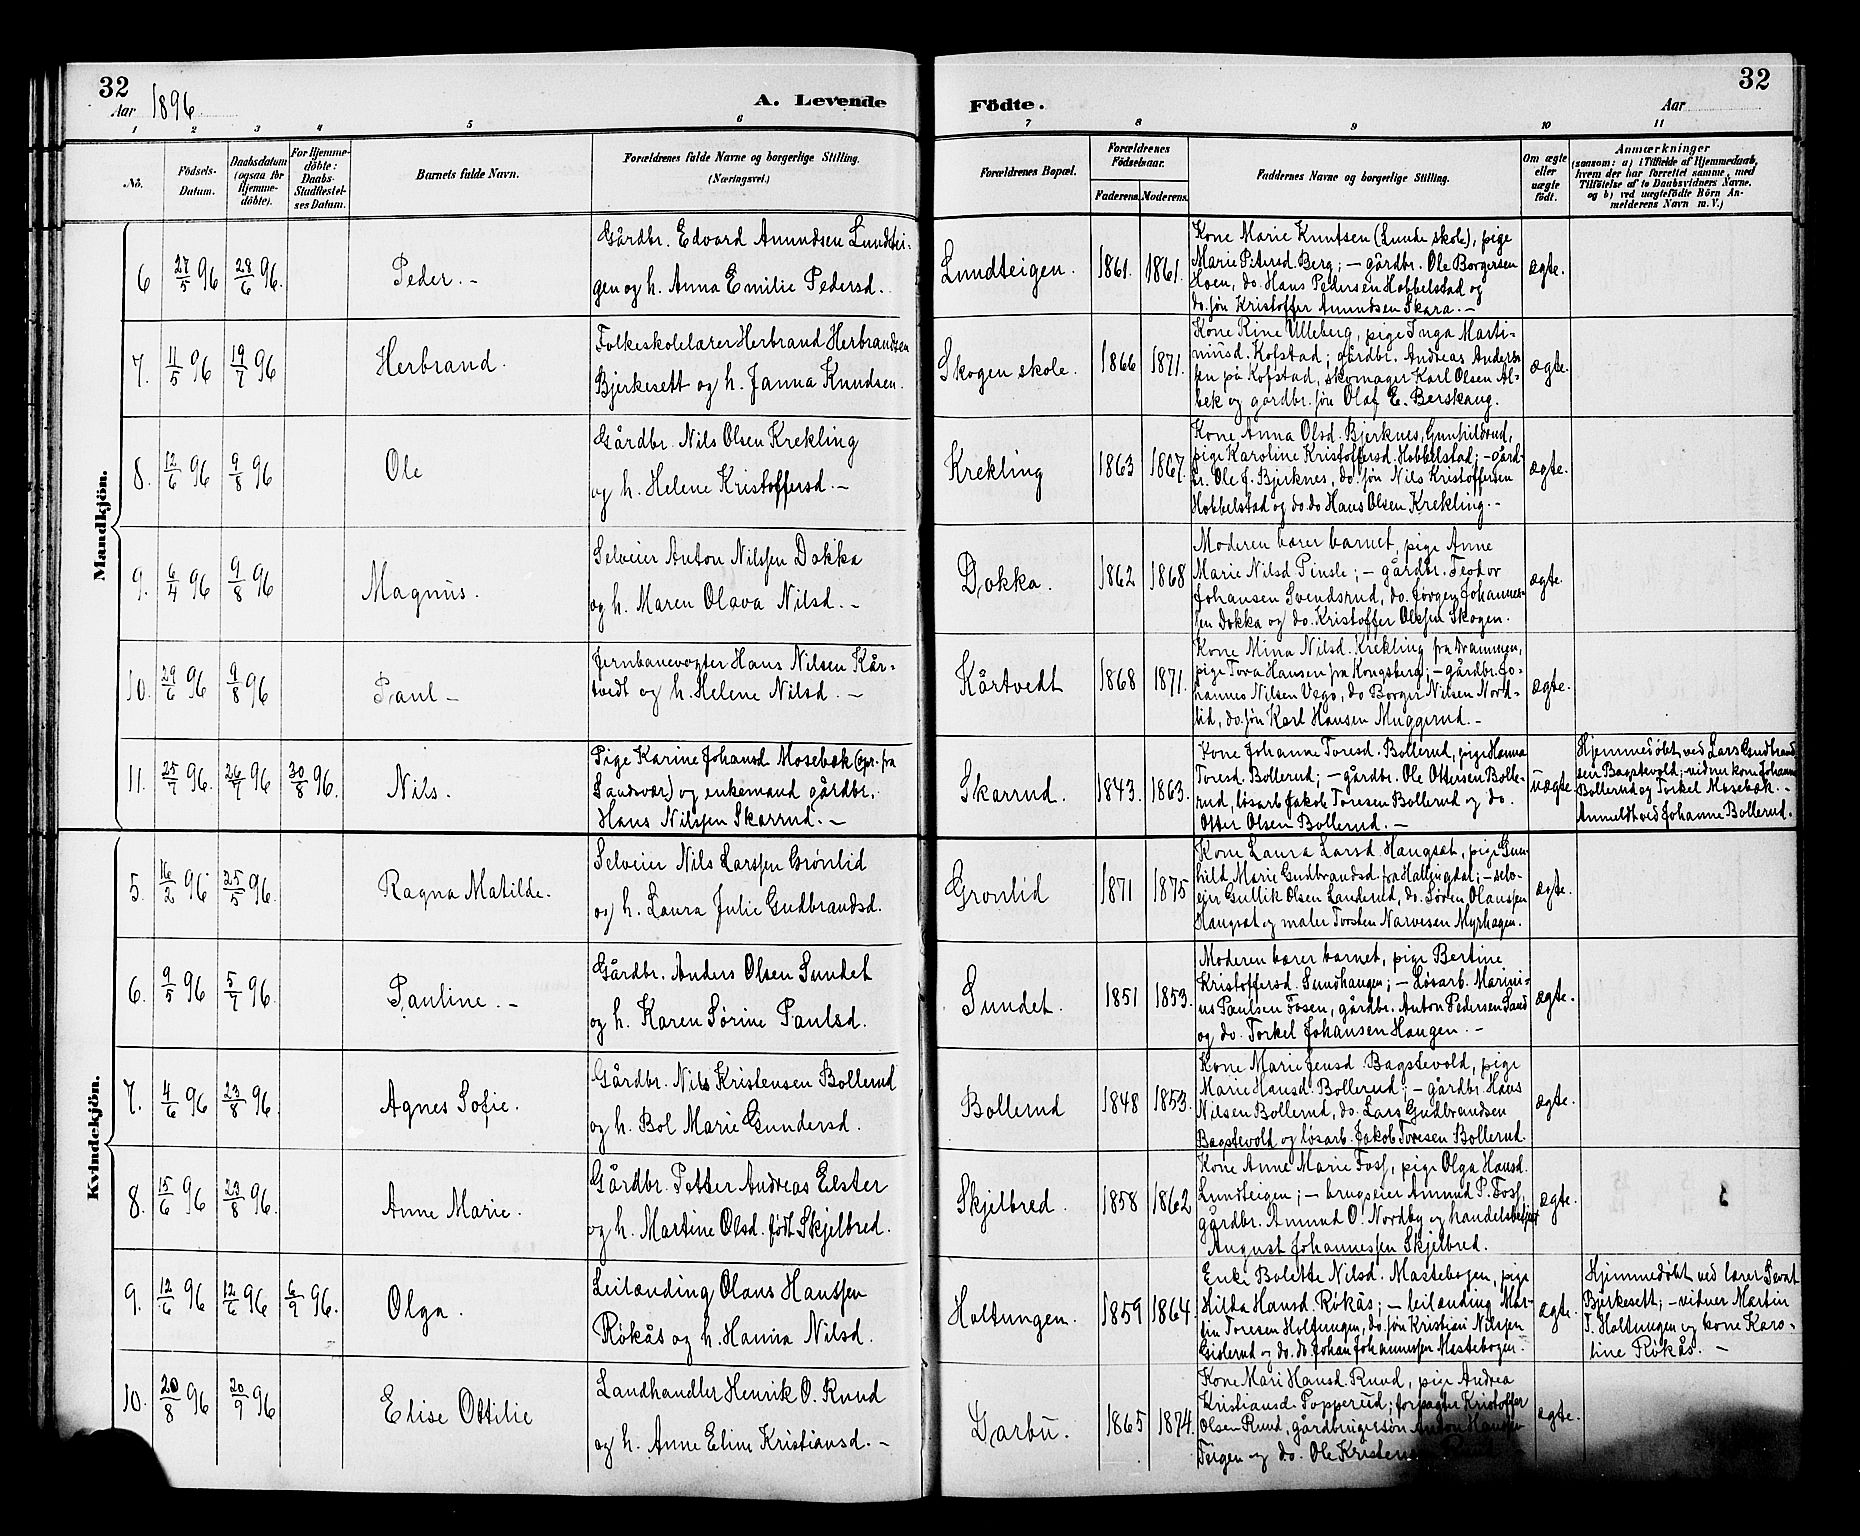 32
Aar 1896
A. Levende
Födte.
32
Aar
1
2
3
4
5
6
7
8
9
10
11
No.
Födsels-
Datum.
Daabsdatum
(ogsaa för
Hjemme-
döbte).
For Hjemme-
döbte:
Daabs-
Stadfæstel-
ses Datum.
Barnets fulde Navn.
Forældrenes fulde Navne og borgerlige Stilling.
(Næringsvei.)
Forældrenes Bopæl.
Forældrenes
Födselsaar.
Faderens.
Moderens.
Faddernes Navne og borgerlige Stilling.
Om ægte
eller
uægte
födt.
Anmærkninger
(saasom: a) i Tilfælde af Hjemmedaab,
hvem der har forrettet samme, med
Tilföielse af to Daabsvidners Navne.
og b) ved uægtefödte Börn An-
melderens Navn m. V.)
Mandkjön.
6
27/5 96
28/6 96.
Peder. -
Gårdbr. Edvard Amundsen Lundtei-
gen og h. Anna Emilie Pedersd. -
Lundteigen.
1861.
1861.
Kone Marie Knutsen (Lunde skole), pige
Marie Petersd. Berg; - gårdbr. Ole Borgersen
Hoen, do. Hans Pedersen Hobbelstad og
do. søn Kristoffer Amundsen Skara. -
ægte.
7.
11/5 96
19/7 96
Herbrand.
Folkeskolelærer Herbrand Herbrandsen
Bjerkesett og h. Janna Knudsen.
Skogen skole.
1866
1871.
Kone Rine Ulleberg, pige Inga Marti-
niusd. Kofstad; gårdbr. Andreas Ander-
sen på Kofstad, skomager Karl Olsen Al-
bek og gårdbr. søn Olaf E. Berskaug.
ægte.
8.
12/6 96
9/8 96
Ole
Gårdbr. Nils Olsen Krekling
og h. Helene Kristoffersd. -
Krekling
1863
1867.
Kone Anna Olsd. Bjerknes, Gunhildrud,
pige Karoline Kristoffersd. Hobbelstad; - gård-
br. Ole J. Bjerknes, do. søn Nils Kristoffersen
Hobbelstad og do. do Hans Olsen Krekling. -
ægte.
9.
6/4 96
9/8 96
Magnus.
Selveier Anton Nilssen Dokka
og h. Maren Olava Nilsd. -
Dokka.
1862
1868
Moderen bærer barnet, pige Anne
Marie Nilsd Pinsle; - gårdbr. Teodor
Johansen Svendsrud, do. Jørgen Johannes-
sen Dokka og do. Kristoffer Olssen Skogen.
ægte.
10.
29/6 96
9/8 96
Paul -
Jernbanevogter Hans Nilsen Kår-
tvedt og h. Helene Nilsd. -
Kårtvedt
1868
1871.
Kone Mina Nilsd. Krekling fra Drammen,
pige Tora Hansen fra Kongsberg; - gårdbr. Jo-
hannes Nilsen Vego, do Borger Nilsen Nord-
lid, do. søn Karl Hansen Muggerud. -
ægte.
11.
25/7 96.
26/7 96
30/8 96.
Nils.
Pige Karine Johansd Mosebæk (opr. fra
Sandsvær) og enkemand gårdbr.
Hans Nilssen Skarrud. -
Skarrud.
1843.
1863.
Kone Johanne Toresd. Bollerud, pige Hanna
Toresd. Bollerud; - gårdbr. Ole Ottersen Bolle-
rud, løsarb. Jakob Toresen Bollerud og do.
Otter Olsen Bollerud. -
uægte.
Hjemmedøbt ved Lars Gudbrand
sen Bagstevold; vidner kone Johanne
Bollerud og Torkel Mosebæk. -
Anmeldt ved Johanne Bollerud.
Kvindekjön.
5.
16/2 96
25/5 96.
Ragna Matilde.
Selveier Nils Larssen Grønlid
og h. Laura Julie Gudbrandsd.
Grønlid
1871
1875
Kone Laura Larsd. Haugsæt, pige Gun-
hild Marie Gudbrandsd. fra Hallingdal; - selv-
eier Gullik Olsen Landerud, do. Søren Olaussen
Haugsæt og maler Torsten Narvesen Myrhagen.
ægte.
6.
9/5 96
5/7 96.
Pauline. -
Gårdbr. Anders Olsen Sundet
og h. Karen Sørine Paulsd.
Sundet.
1851
1853.
Moderen bærer barnet, pige Bertine
Kristoffersd. Sundhaugen; - Løsarb. Marini-
us Paulsen Fosen, gårdbr. Anton Pedersen Sand
og do. Torkel Johansen Haugen. -
ægte.
7.
4/6 96
23/8 96.
Agnes Sofie.
Gårdbr. Nils Kristensen Bollerud
og h. Bol Marie Gundersd.
Bollerud
1848
1853.
Kone Marie Jensd. Bagstevold, pige
Marie Hansd. Bollerud; - gårdbr. Hans
Nilsen Bollerud, do. Lars Gudbrandsen
Bagstevold og løsarb. Jakob Toresen Bollerud.
ægte.
8.
15/6 96
23/8 96.
Anne Marie.
Gårdbr. Petter Andreas Elster
og h. Martine Olsd. født Skjelbred.
Skjelbred.
1858
1862
Kone Anne Marie Foss, pige Olga Hansd.
Lundteigen; - brugseier Amund P. Foss,
gårdbr. Amund O. Nordby og handelsbetjent
August Johannessen Skjelbred.
ægte.
9.
12/6 96
12/6 96
6/9 96.
Olga.
Leilænding Olaus Hanssen
Røkås og h. Hanna Nilsd.
Holtungen.
1859
1864.
Enke Bolette Nilsd. Mastebogen, pige
Hilda Hansd. Røkås; - leilænding Mar-
tin Toresen Holtungen, do. søn Kristian Nilssen
Gislerud og do. do. Johan Johannessen Mastebogen.
ægte.
Hjemmedøbt ved lærer Sevat
Bjerkesett; - vidner Martin
T. Holtungen og kone Karo-
line Røkås. -
10.
20/8 96
20/9 96
Elise Ottilie
Landhandler Henrik O. Ruud
og h. Anne Eline Kristiansd. -
Darbu.
1865
1874.
Kone Mari Hansd. Ruud, pige Andrea
Kristiansd. Popperud; forpagter Kristoffer
Olsen Ruud, gårdbrugersøn Anton Hansen
Teigen og do. Ole Kristen
ægte.